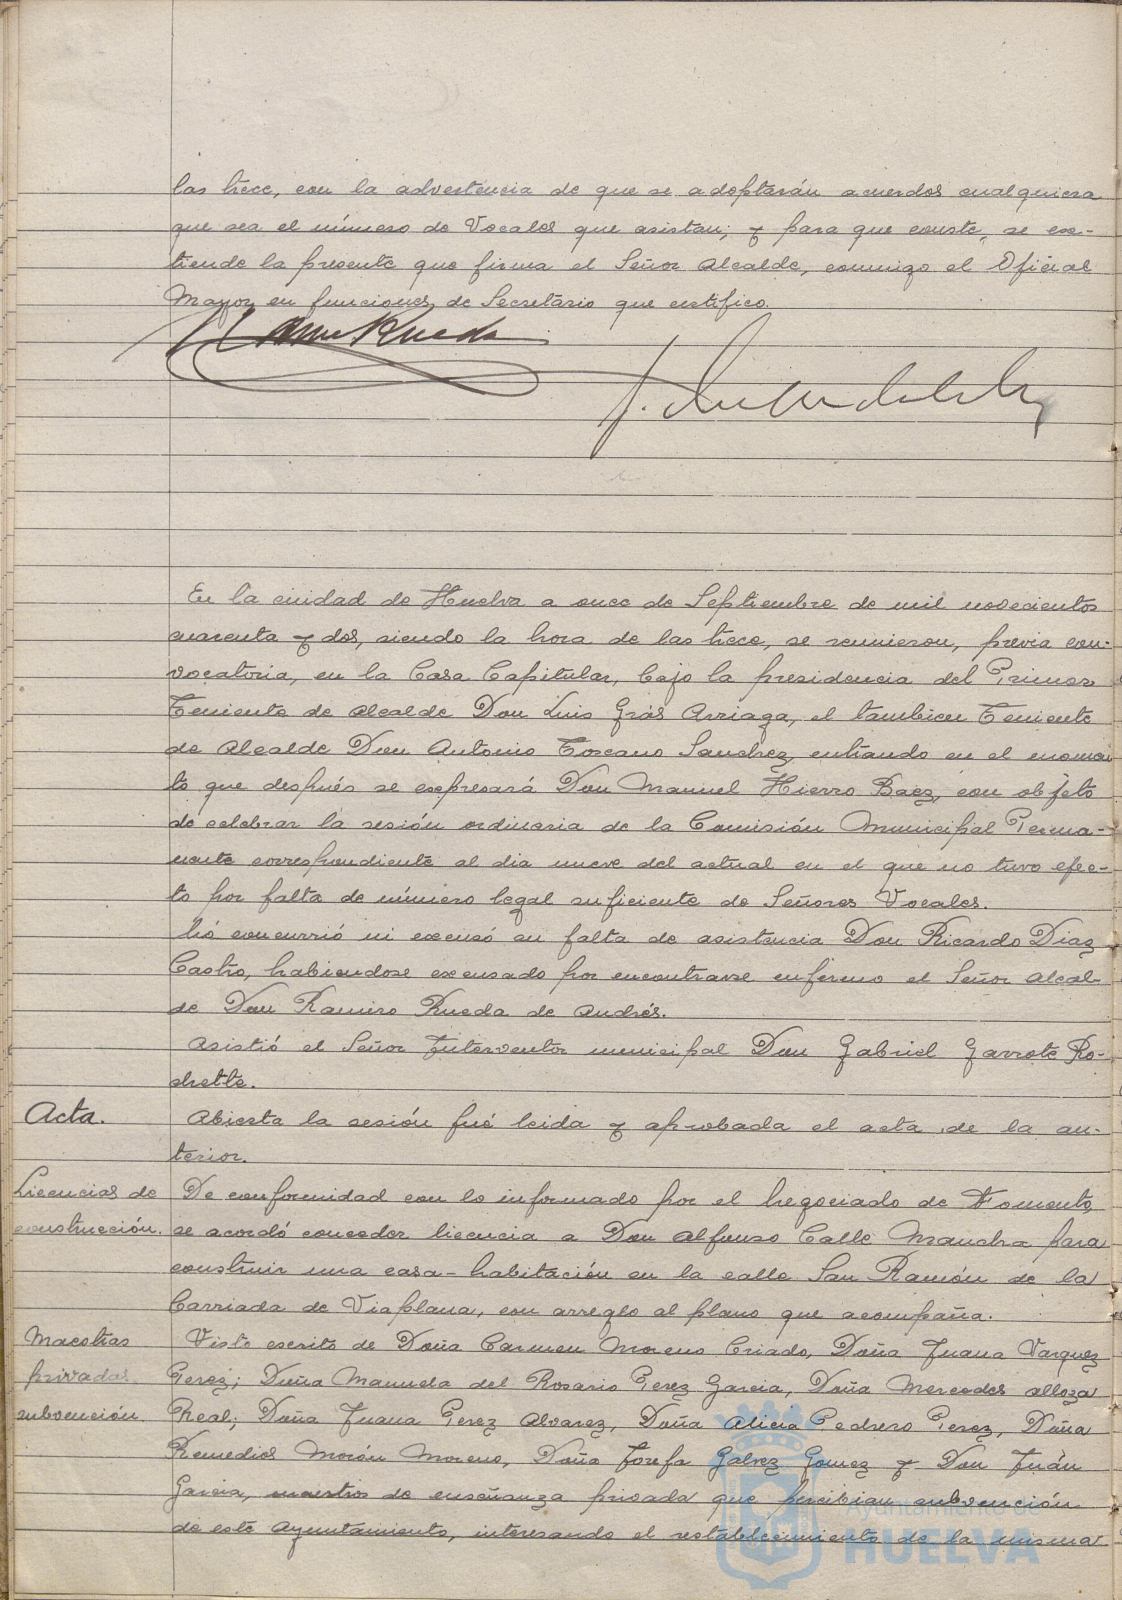 las trece, con la advertencia de que se adoptarán acuerdos cualquiera
que sea el número de Vocales que asistan; y para que conste, se ex-
tiende la presente que firma el Señor Alcalde, conmigo el Oficial
Mayor en funciones de Secretario que certifico.
En la ciudad de Huelva a once de Septiembre de mil novecientos
cuarenta y dos, siendo la hora de las trece, se reunieron, previa con-
vocatoria, en la Casa Capitular, bajo la presidencia del Primer
Teniente de Alcalde Don Luis Grás Arriaga, el tambien Teniente
de Alcalde Don Antonio Toscano Sanchez, entrando en el momen
to que después se expresará Don Manuel Hierro Baez, con objeto
de celebrar la sesión ordinaria de la Comisión Municipal Perma-
nente correspondiente al dia nueve del actual en el que no tuvo efec-
to por falta de número legal suficiente de Señores Vocales.
No concurrió ni excusó su falta de asistencia Don Ricardo Diaz
Castro, habiendose excusado por encontrarse enfermo el Señor Alcal-
de Don Ramiro Rueda de Andrés.
Asistió el Señor Interventor municipal Don Gabriel Garrote Ro-
chette.
Acta. Abierta la sesión fué leida y aprobada el acta de la an-
terior.
Licencias de De conformidad con lo informado por el Negociado de Fomento,
construcción. se acordó conceder licencia a Don Alfonso Calle Mancha para
construir una casa-habitación en la calle San Ramón de la
barriada de Viaplana, con arreglo al plano que acompaña.
Maestras Visto escrito de Doña Carmen Moreno Criado, Doña Juana Vazquez
privadas Perez; Doña Manuela del Rosario Perez Garcia, Doña Mercedes Alloza
subvención. Real; Doña Juana Perez Alvarez, Doña Alicia Pedrero Perez, Doña
Remedios Morón Moreno, Doña Josefa Galvez Gomez y Don Juán
Garcia, maestros de enseñanza privada que percibian subvención
de este Ayuntamiento, interesando el restablecimiento de la misma
Ayuntamiento de
HUELVA